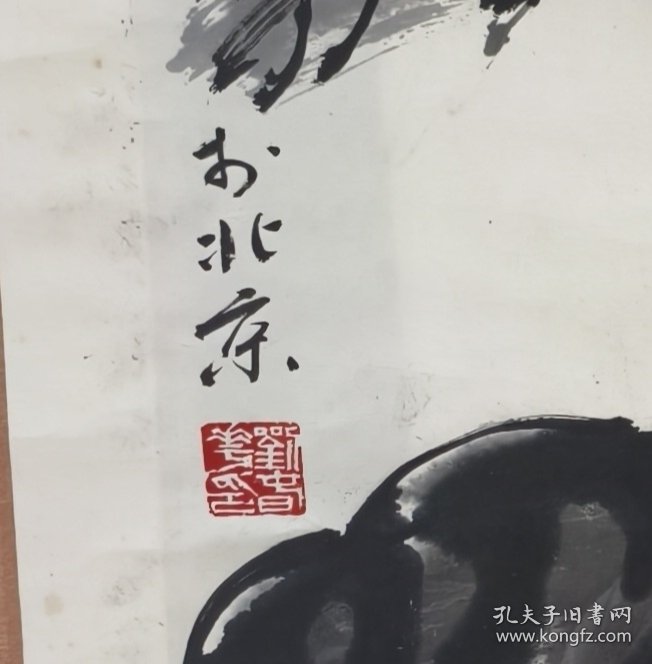 於北京
劉春華印
孔夫子旧书网
www.kongfz.com